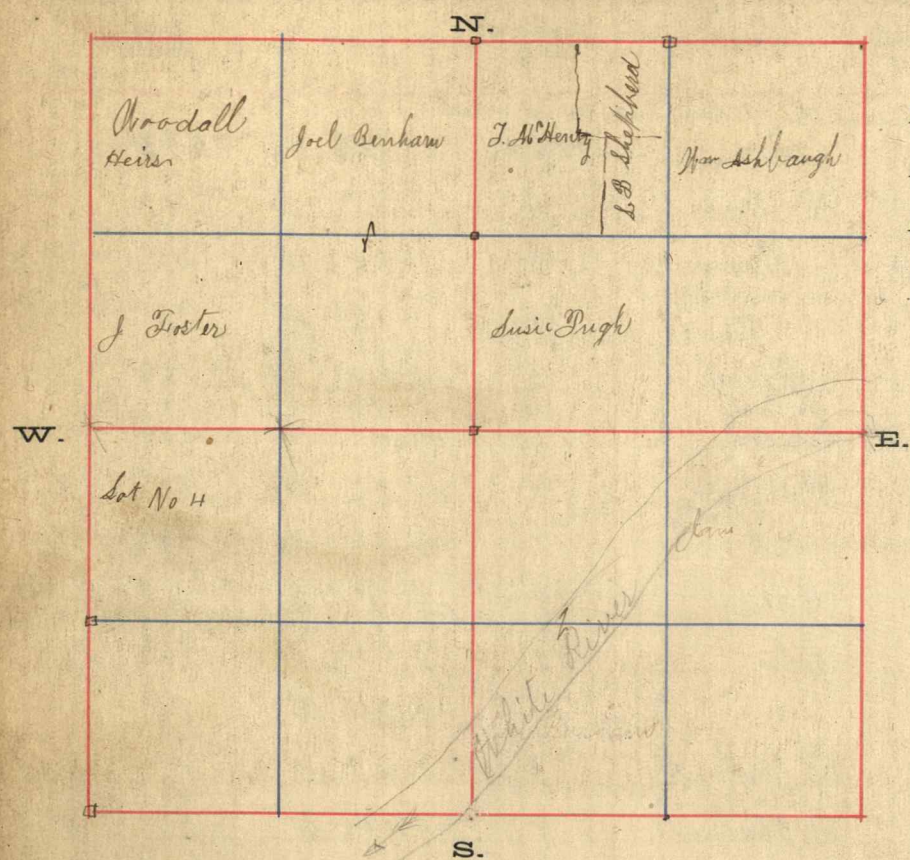 N.
Woodall
Heirs
Joel Benham
J. McHenry
L B Shepherd
Wm Ashbaugh
J Foster
Susie Pugh
W.
E.
Lot No 4
White River
S.